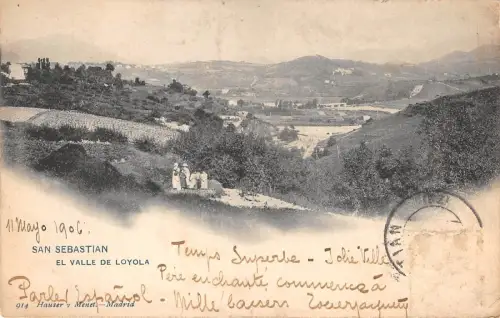 11 Mayo 1906.
SAN SEBASTIAN
EL VALLE DE LOYOLA
Temps Superbe - Jolie Ville
Père enchanté commence à
Parler Español - Mille baisers
914 Hauser y Menet.-Madrid